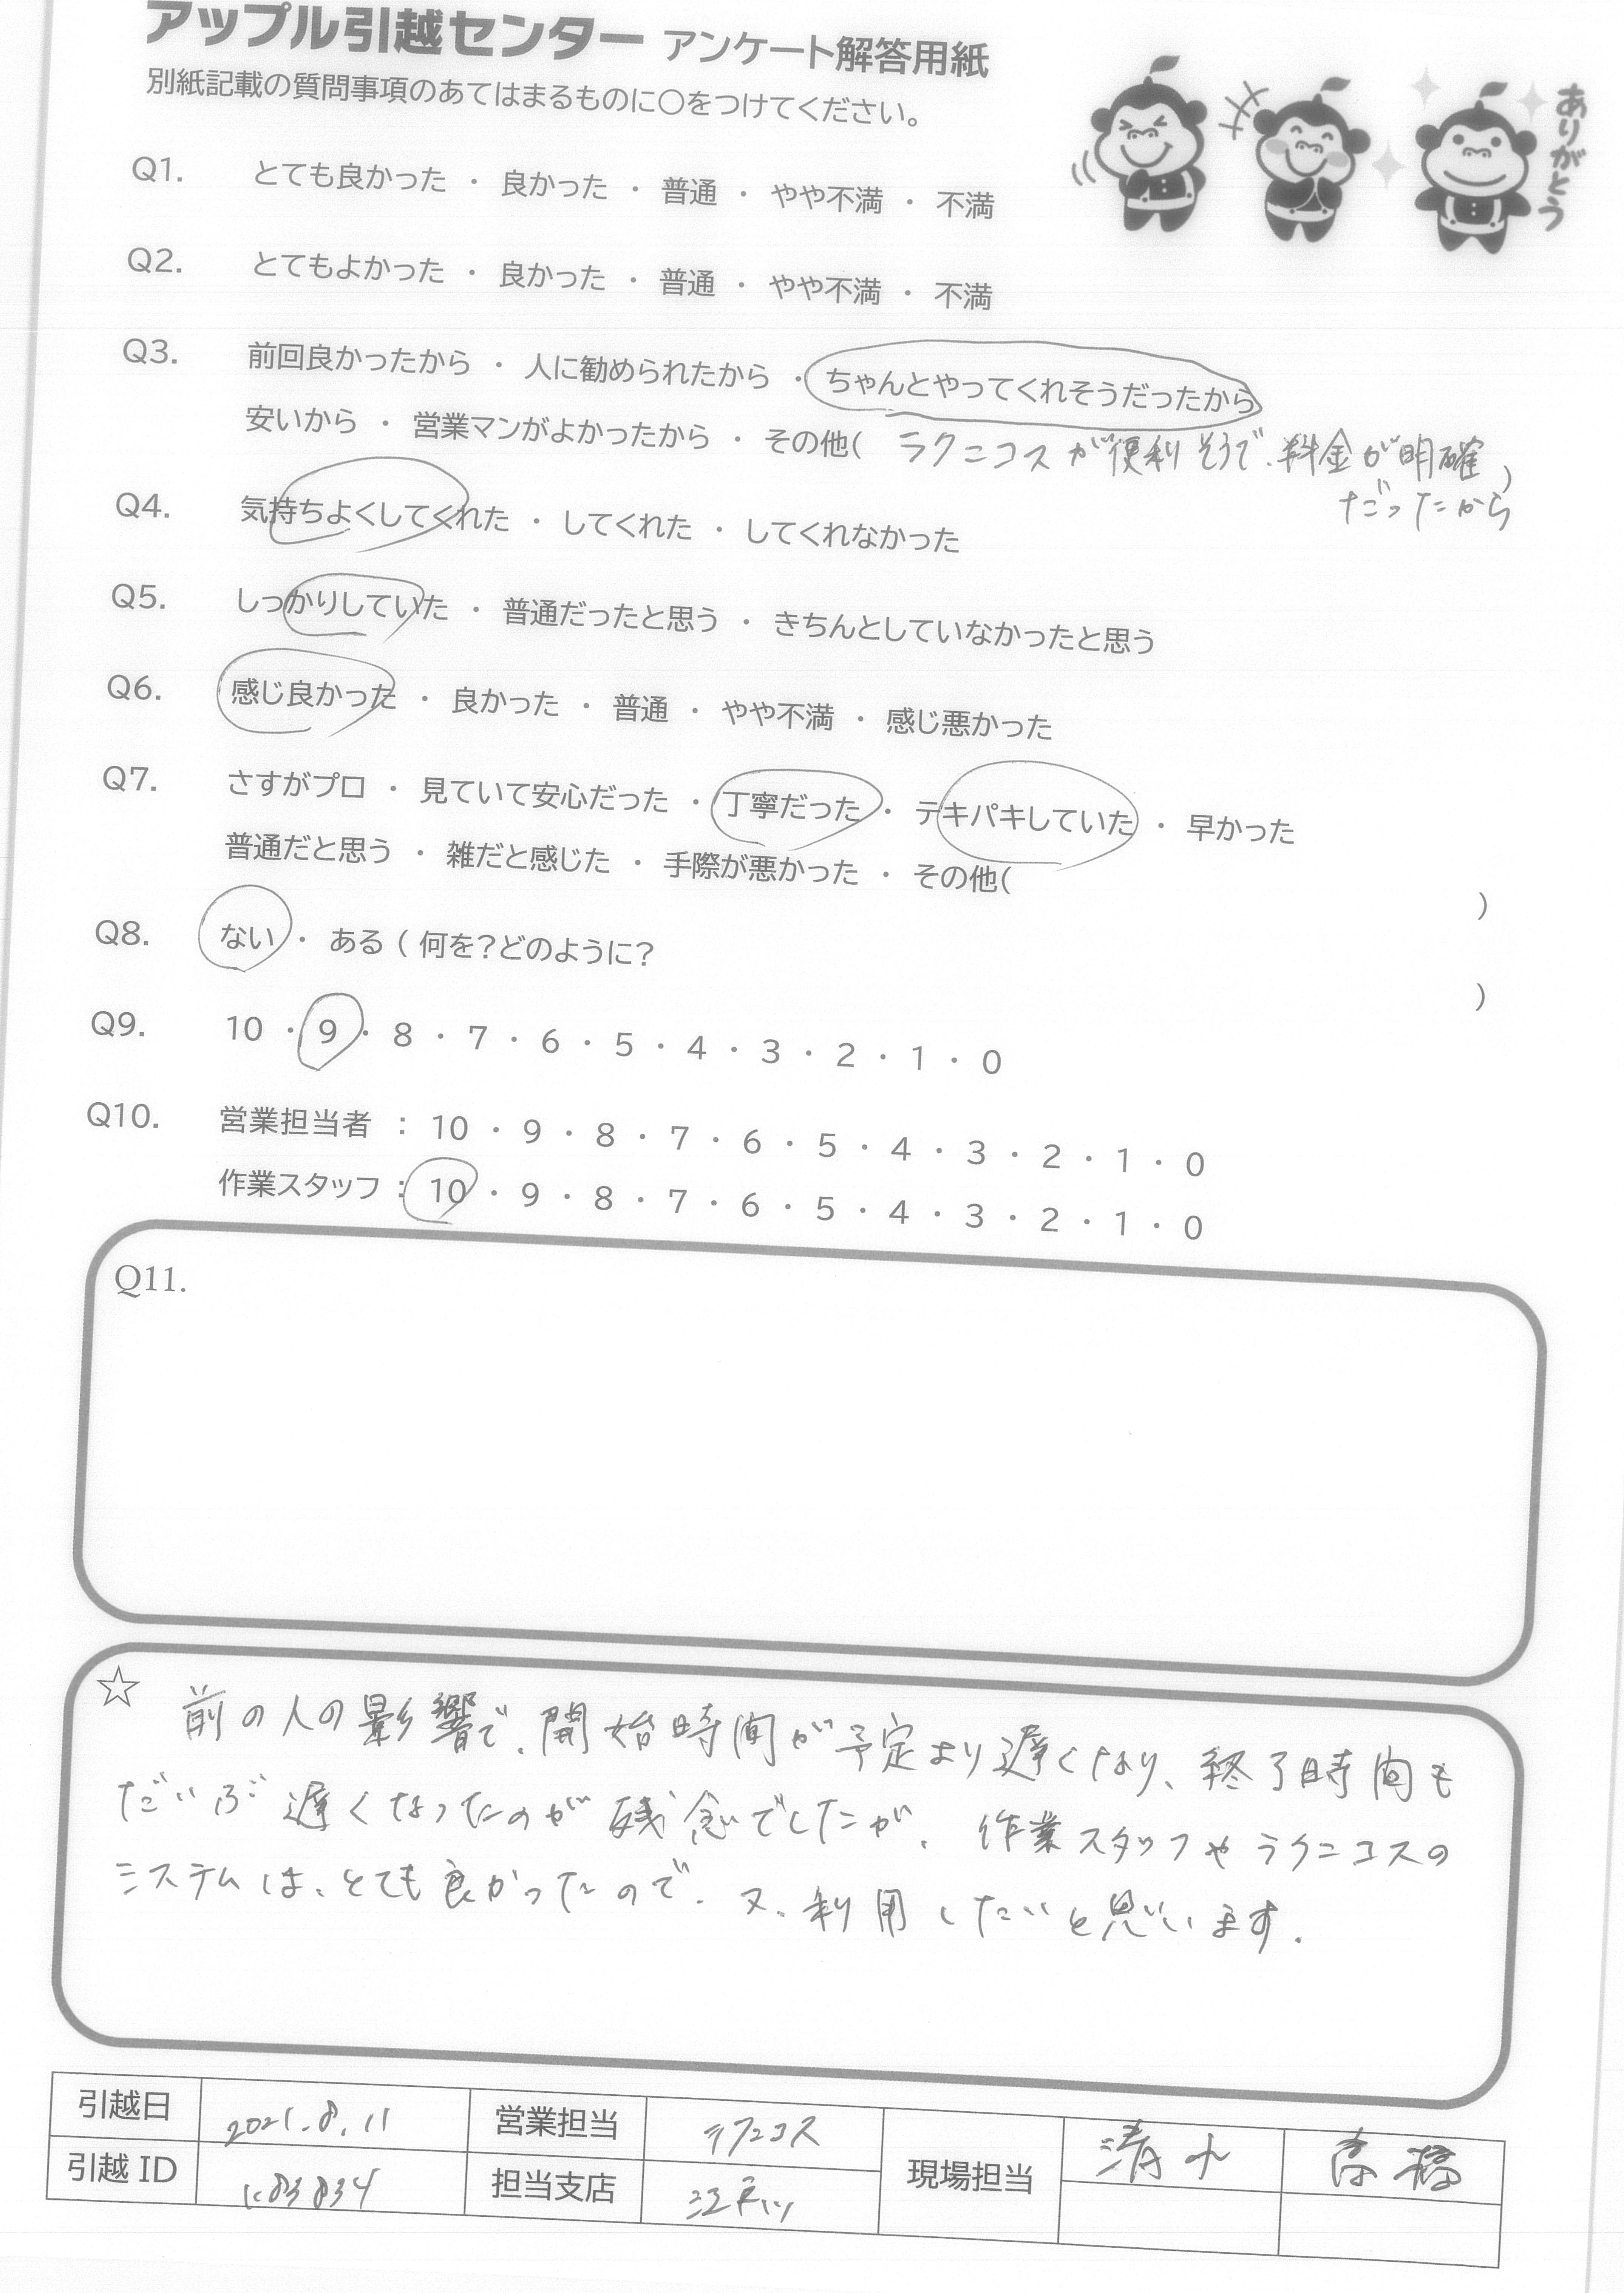 アップル引越センター アンケート解答用紙
別紙記載の質問事項のあてはまるものに〇をつけてください。
ありがとう
Q1. とても良かった ・ 良かった ・ 普通 ・ やや不満 ・ 不満
Q2. とてもよかった ・ 良かった ・ 普通 ・ やや不満 ・ 不満
Q3. 前回良かったから ・ 人に勧められたから ・ ちゃんとやってくれそうだったから
安いから ・ 営業マンがよかったから ・ その他( ラクニコスが便利そうで、料金が明確
だったから )
Q4. 気持ちよくしてくれた ・ してくれた ・ してくれなかった
Q5. しっかりしていた ・ 普通だったと思う ・ きちんとしていなかったと思う
Q6. 感じ良かった ・ 良かった ・ 普通 ・ やや不満 ・ 感じ悪かった
Q7. さすがプロ ・ 見ていて安心だった ・ 丁寧だった ・ テキパキしていた ・ 早かった
普通だと思う ・ 雑だと感じた ・ 手際が悪かった ・ その他( )
Q8. ない ・ ある ( 何を?どのように? )
Q9. 10 ・ 9 ・ 8 ・ 7 ・ 6 ・ 5 ・ 4 ・ 3 ・ 2 ・ 1 ・ 0
Q10. 営業担当者 : 10 ・ 9 ・ 8 ・ 7 ・ 6 ・ 5 ・ 4 ・ 3 ・ 2 ・ 1 ・ 0
作業スタッフ : 10 ・ 9 ・ 8 ・ 7 ・ 6 ・ 5 ・ 4 ・ 3 ・ 2 ・ 1 ・ 0
Q11.
☆ 前の人の影響で、開始時間が予定より遅くなり、終了時間も
だいぶ遅くなったのが残念でしたが、作業スタッフやラクニコスの
システムは、とても良かったので、又、利用したいと思います.
引越日 2021.8.11 営業担当 ラクニコス 現場担当 清水 高橋
引越 ID 担当支店 江戸川